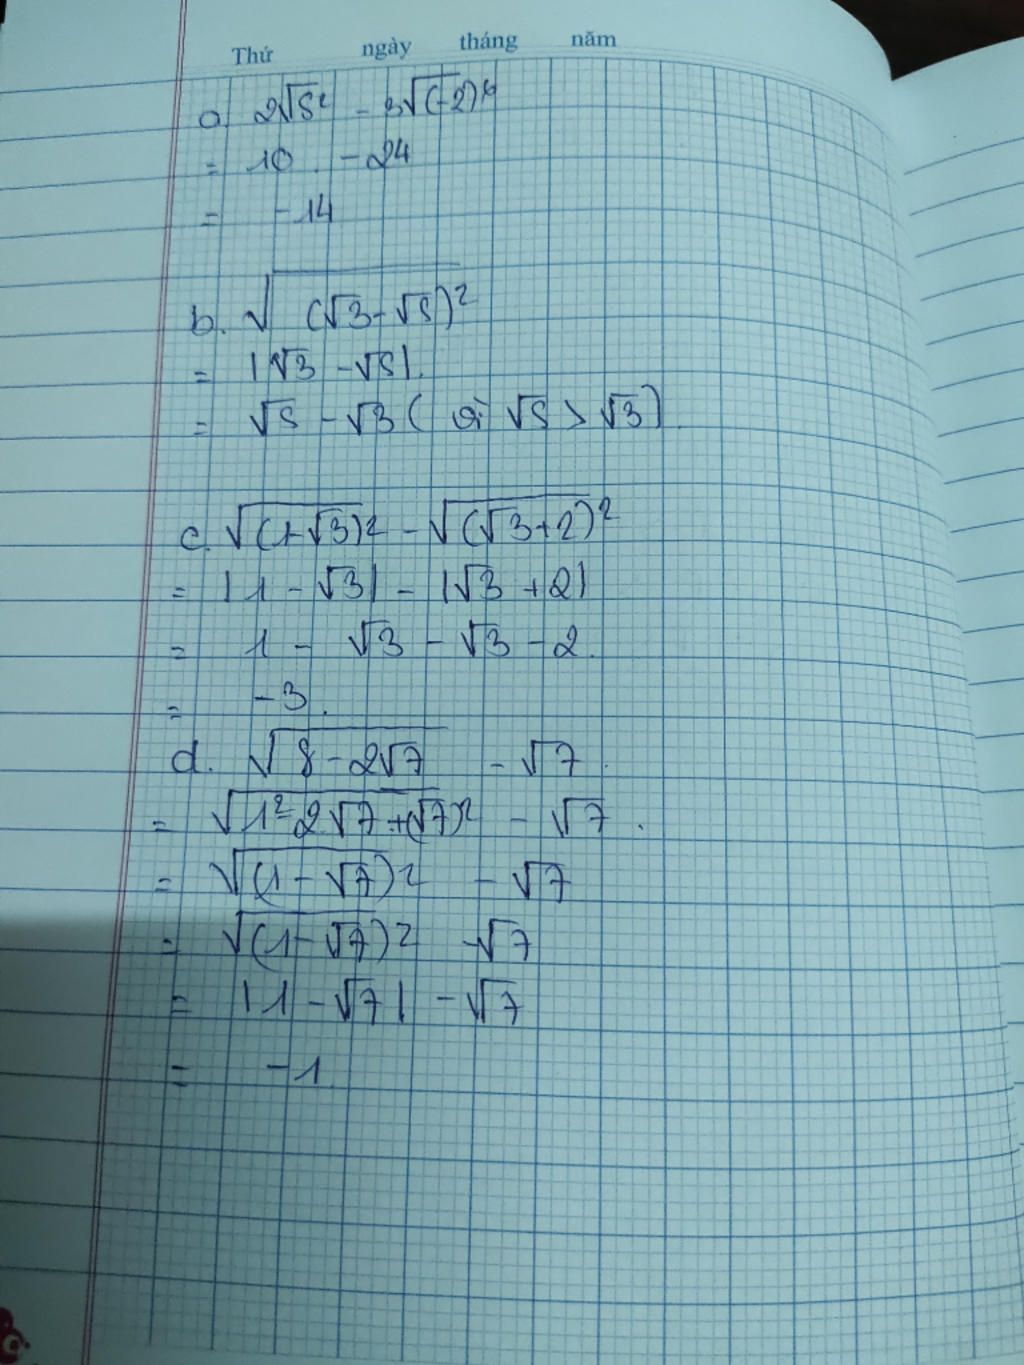 Thứ ngày tháng năm
a. 2√5² - 3√(-2)⁶
= 10 - 24
= -14
b. √(√3-√5)²
= |√3 - √5|.
= √5 - √3 ( vì √5 > √3 )
c. √(1-√3)² - √(√3+2)²
= |1 - √3| - |√3 + 2|
= 1 - √3 - √3 - 2.
= -3.
d. √8 - 2√7 - √7.
= √1² - 2√7 + (√7)² - √7.
= √(1 - √7)² - √7
= √(1-√7)² -√7
= |1 - √7| - √7
= -1